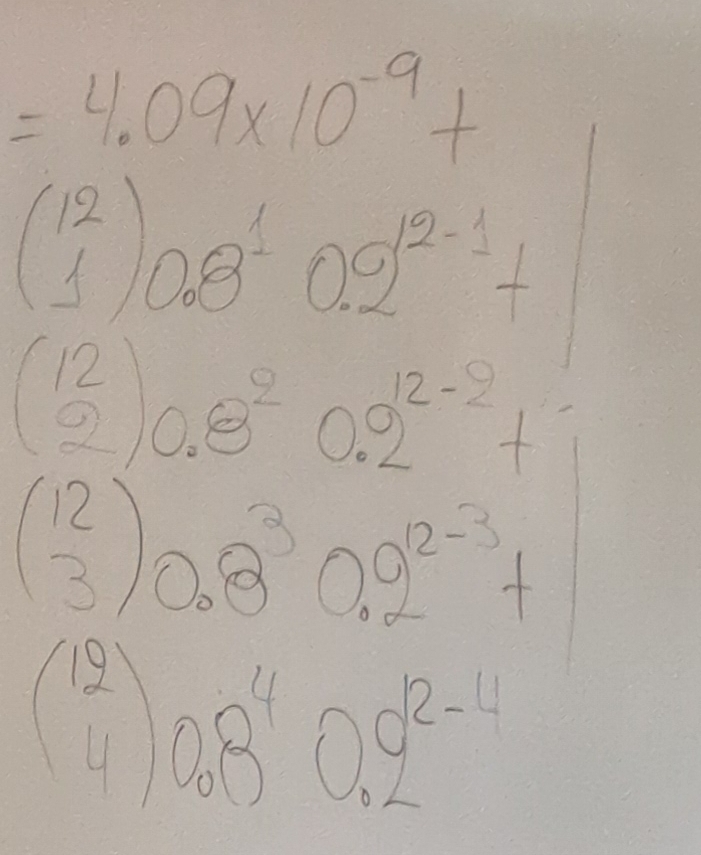 = 4.09×10⁻⁹ +
(12 1) 0.8¹ 0.2¹²⁻¹ +
(12 2) 0.8² 0.2¹²⁻² +
(12 3) 0.8³ 0.2¹²⁻³ +
(12 4) 0.8⁴ 0.2¹²⁻⁴